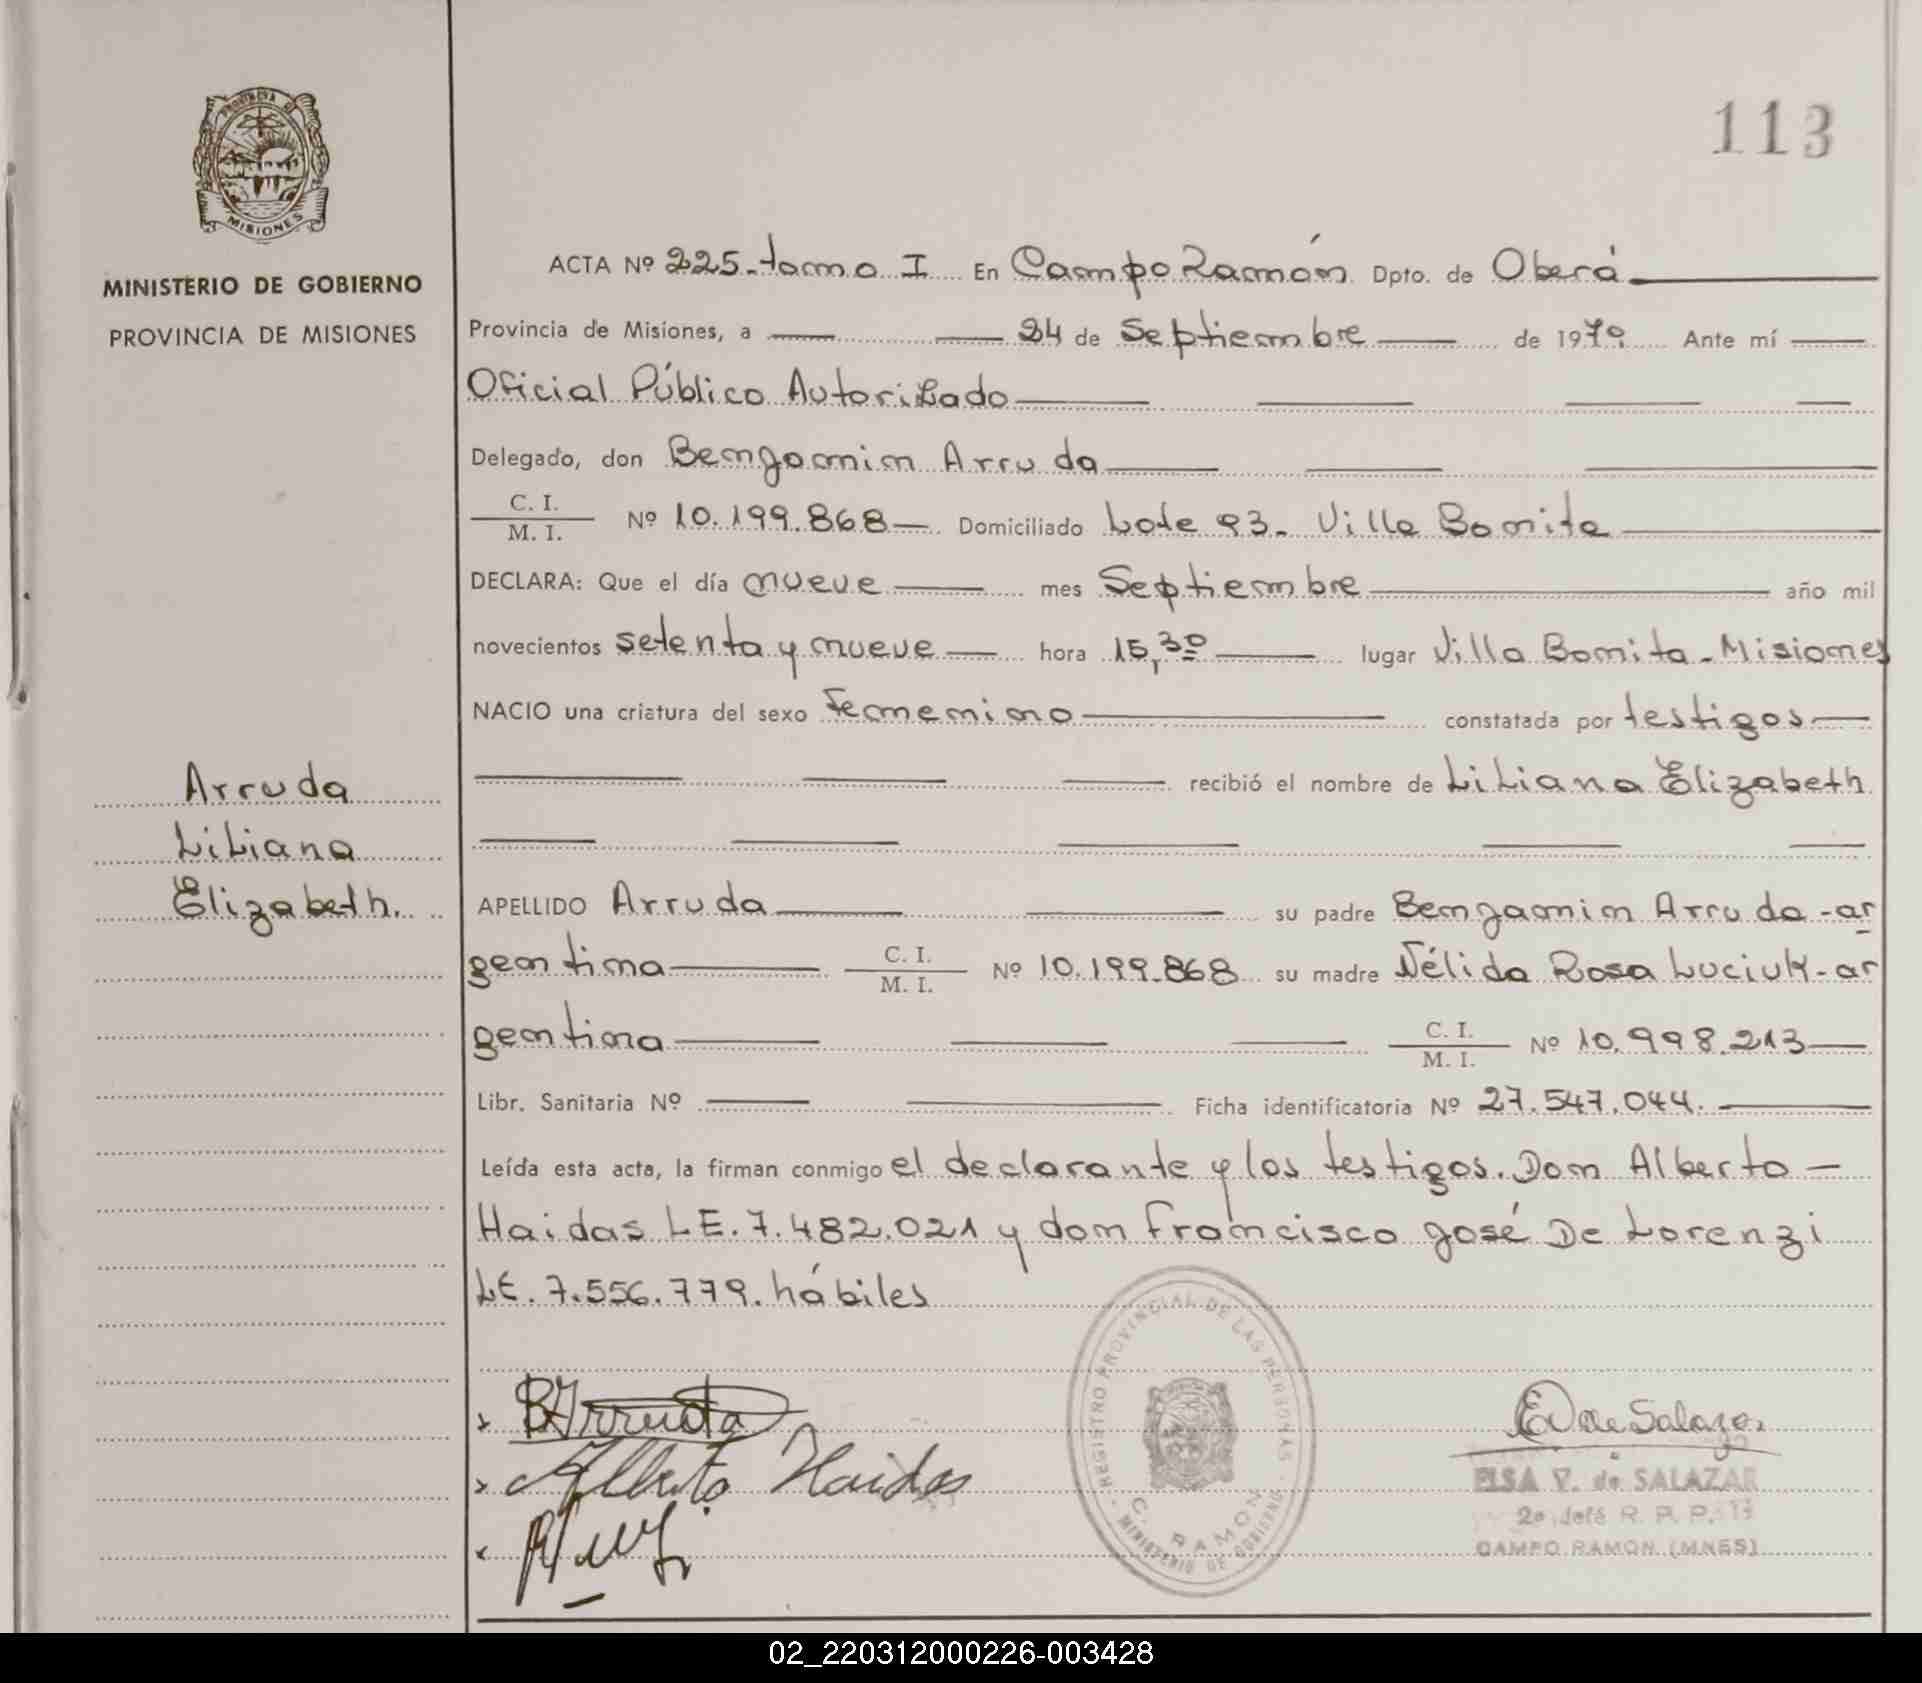 113
PROVINCIA DE
MISIONES
MINISTERIO DE GOBIERNO
PROVINCIA DE MISIONES
ACTA Nº 225-tomo I En Campo Ramón Dpto. de Oberá
Provincia de Misiones, a 24 de Septiembre de 1979 Ante mí
Oficial Público Autorizado
Delegado, don Bengamin Arruda
C. I.
M. I. Nº 10.199.868 Domiciliado Lote 93- Villa Bonita
DECLARA: Que el día nueve mes Septiembre año mil
novecientos setenta y nueve hora 15,30 lugar Villa Bonita-Misiones
NACIO una criatura del sexo femenino constatada por testigos
recibió el nombre de Liliana Elizabeth
Arruda
Liliana
Elizabeth.
APELLIDO Arruda su padre Bengamin Arruda-ar
gentina C. I.
M. I. Nº 10.199.868 su madre Nélida Rosa Luciuk-ar
gentina C. I.
M. I. Nº 10.998.213
Libr. Sanitaria Nº Ficha identificatoria Nº 27.547.044.
Leída esta acta, la firman conmigo el declarante y los testigos. Don Alberto
Haidas LE. 7.482.021 y don Francisco José De Lorenzi
LE. 7.556.779. hábiles
REGISTRO PROVINCIAL DE LAS PERSONAS
C. RAMON
MINISTERIO DE GOBIERNO
BArruda
Alberto Haidas
EVdeSalazar
ELSA V. de SALAZAR
2º Jefe R. P. P.
CAMPO RAMON (MNES)
02_220312000226-003428